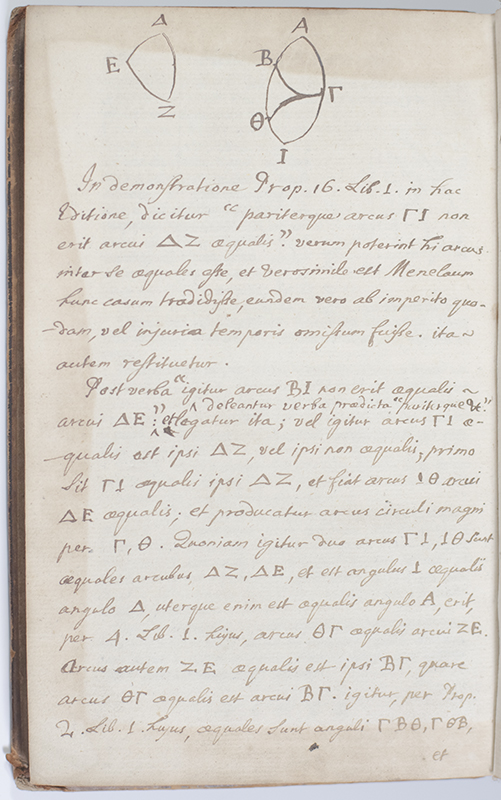 Δ
A
E
B
Γ
Z
Θ
I
In demonstratione Prop. 16. Lib. 1. in hac
Editione, dicitur "pariterque arcus ΓΙ non
erit arcui ΔΖ æqualis". verum poterint hi arcus
inter se æquales esse, et verosimile est Menelaum
hunc casum tradidisse, eundem vero ab imperito quo-
-dam, vel injuria temporis omissum fuisse. ita
autem restituetur.
Post verba "igitur arcus ΒΙ non erit æqualis
deleantur verba prædicta "pariterque &c."
arcui ΔΕ": et legatur ita; vel igitur arcus ΓΙ æ-
-qualis est ipsi ΔΖ, vel ipsi non æqualis; primo
sit ΓΙ æqualis ipsi ΔΖ, et fiat arcus ΙΘ arcui
ΔΕ æqualis; et producatur arcus circuli magni
per Γ, Θ. Quoniam igitur duo arcus ΓΙ, ΙΘ sunt
æquales arcubus ΔΖ, ΔΕ, et est angulus Ι æqualis
angulo Δ, uterque enim est æqualis angulo Α, erit,
per 4. Lib. 1. hujus, arcus ΘΓ æqualis arcui ΖΕ.
Arcus autem ΖΕ æqualis est ipsi ΒΓ, quare
arcus ΘΓ æqualis est arcui ΒΓ. igitur, per Prop.
2. Lib. 1. hujus, æquales sunt anguli ΓΒΘ, ΓΘΒ,
et